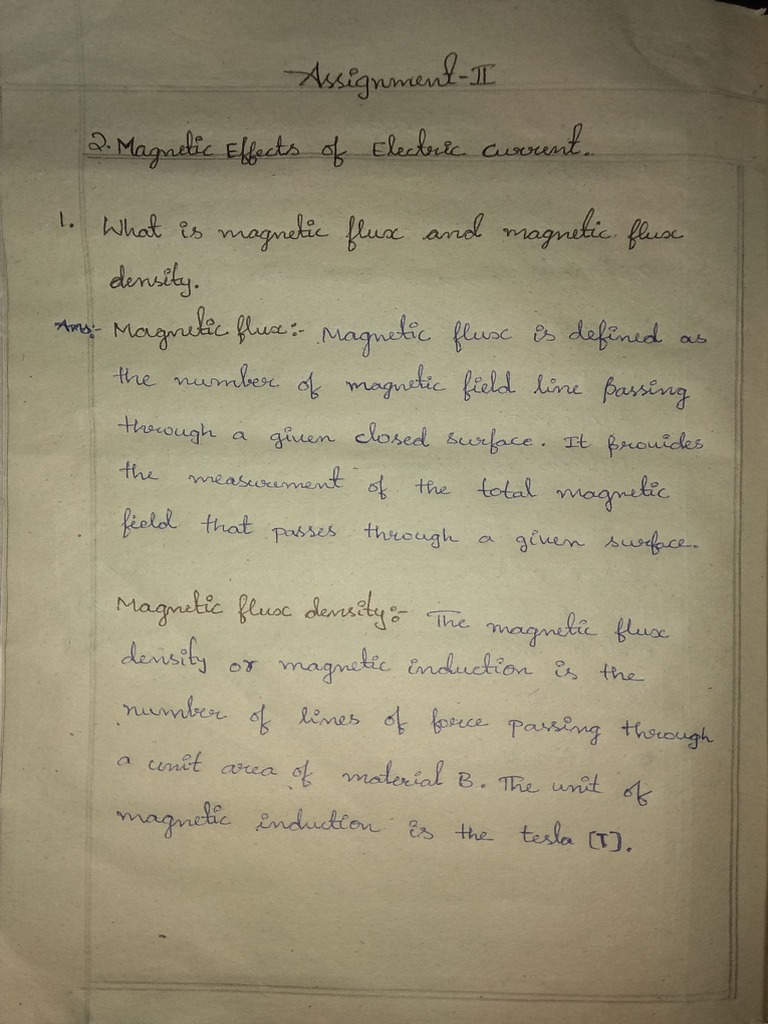 Assignment-II
2. Magnetic Effects of Electric Current.
1. What is magnetic flux and magnetic flux
density.
Ans:- Magnetic flux:- Magnetic flux is defined as
the number of magnetic field line passing
through a given closed surface. It provides
the measurement of the total magnetic
field that passes through a given surface.
Magnetic flux density:- The magnetic flux
density or magnetic induction is the
number of lines of force passing through
a unit area of material B. The unit of
magnetic induction is the tesla [T].